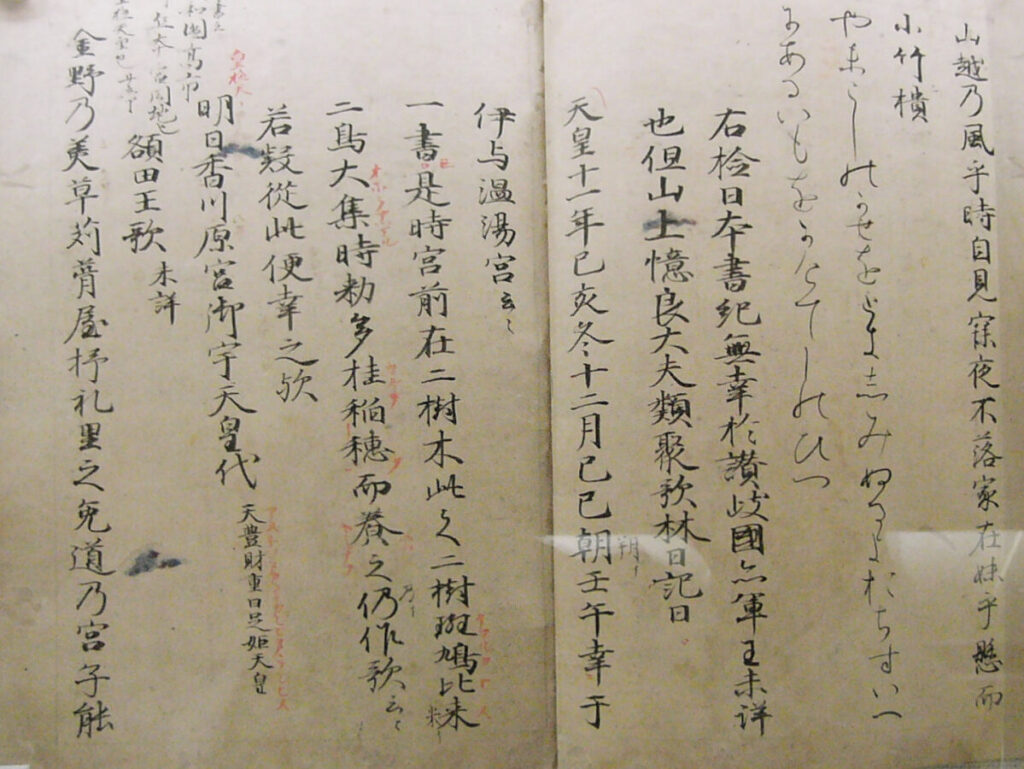 山越乃風乎時自見寐夜不落家在妹乎懸而
小竹樻
やまこしのかせをときしみぬるよおちすいへ
にあるいもをかけてしのひつ
右檢日本書紀無幸於讃岐國亦軍王未詳
也但山上憶良大夫類聚歌林曰記曰
天皇十一年己亥冬十二月己巳朝壬午幸于
朔イ
伊与温湯宮云々
一書是時宮前在二樹木此之二樹斑鳩比来
二鳥大集時勅多桂稲穂而養之仍作歌云々
若疑從此便幸之歟
明日香川原宮御宇天皇代 天豊財重日足姫天皇
額田王歌 未詳
金野乃美草苅葺屋杼礼里之兔道乃宮子能